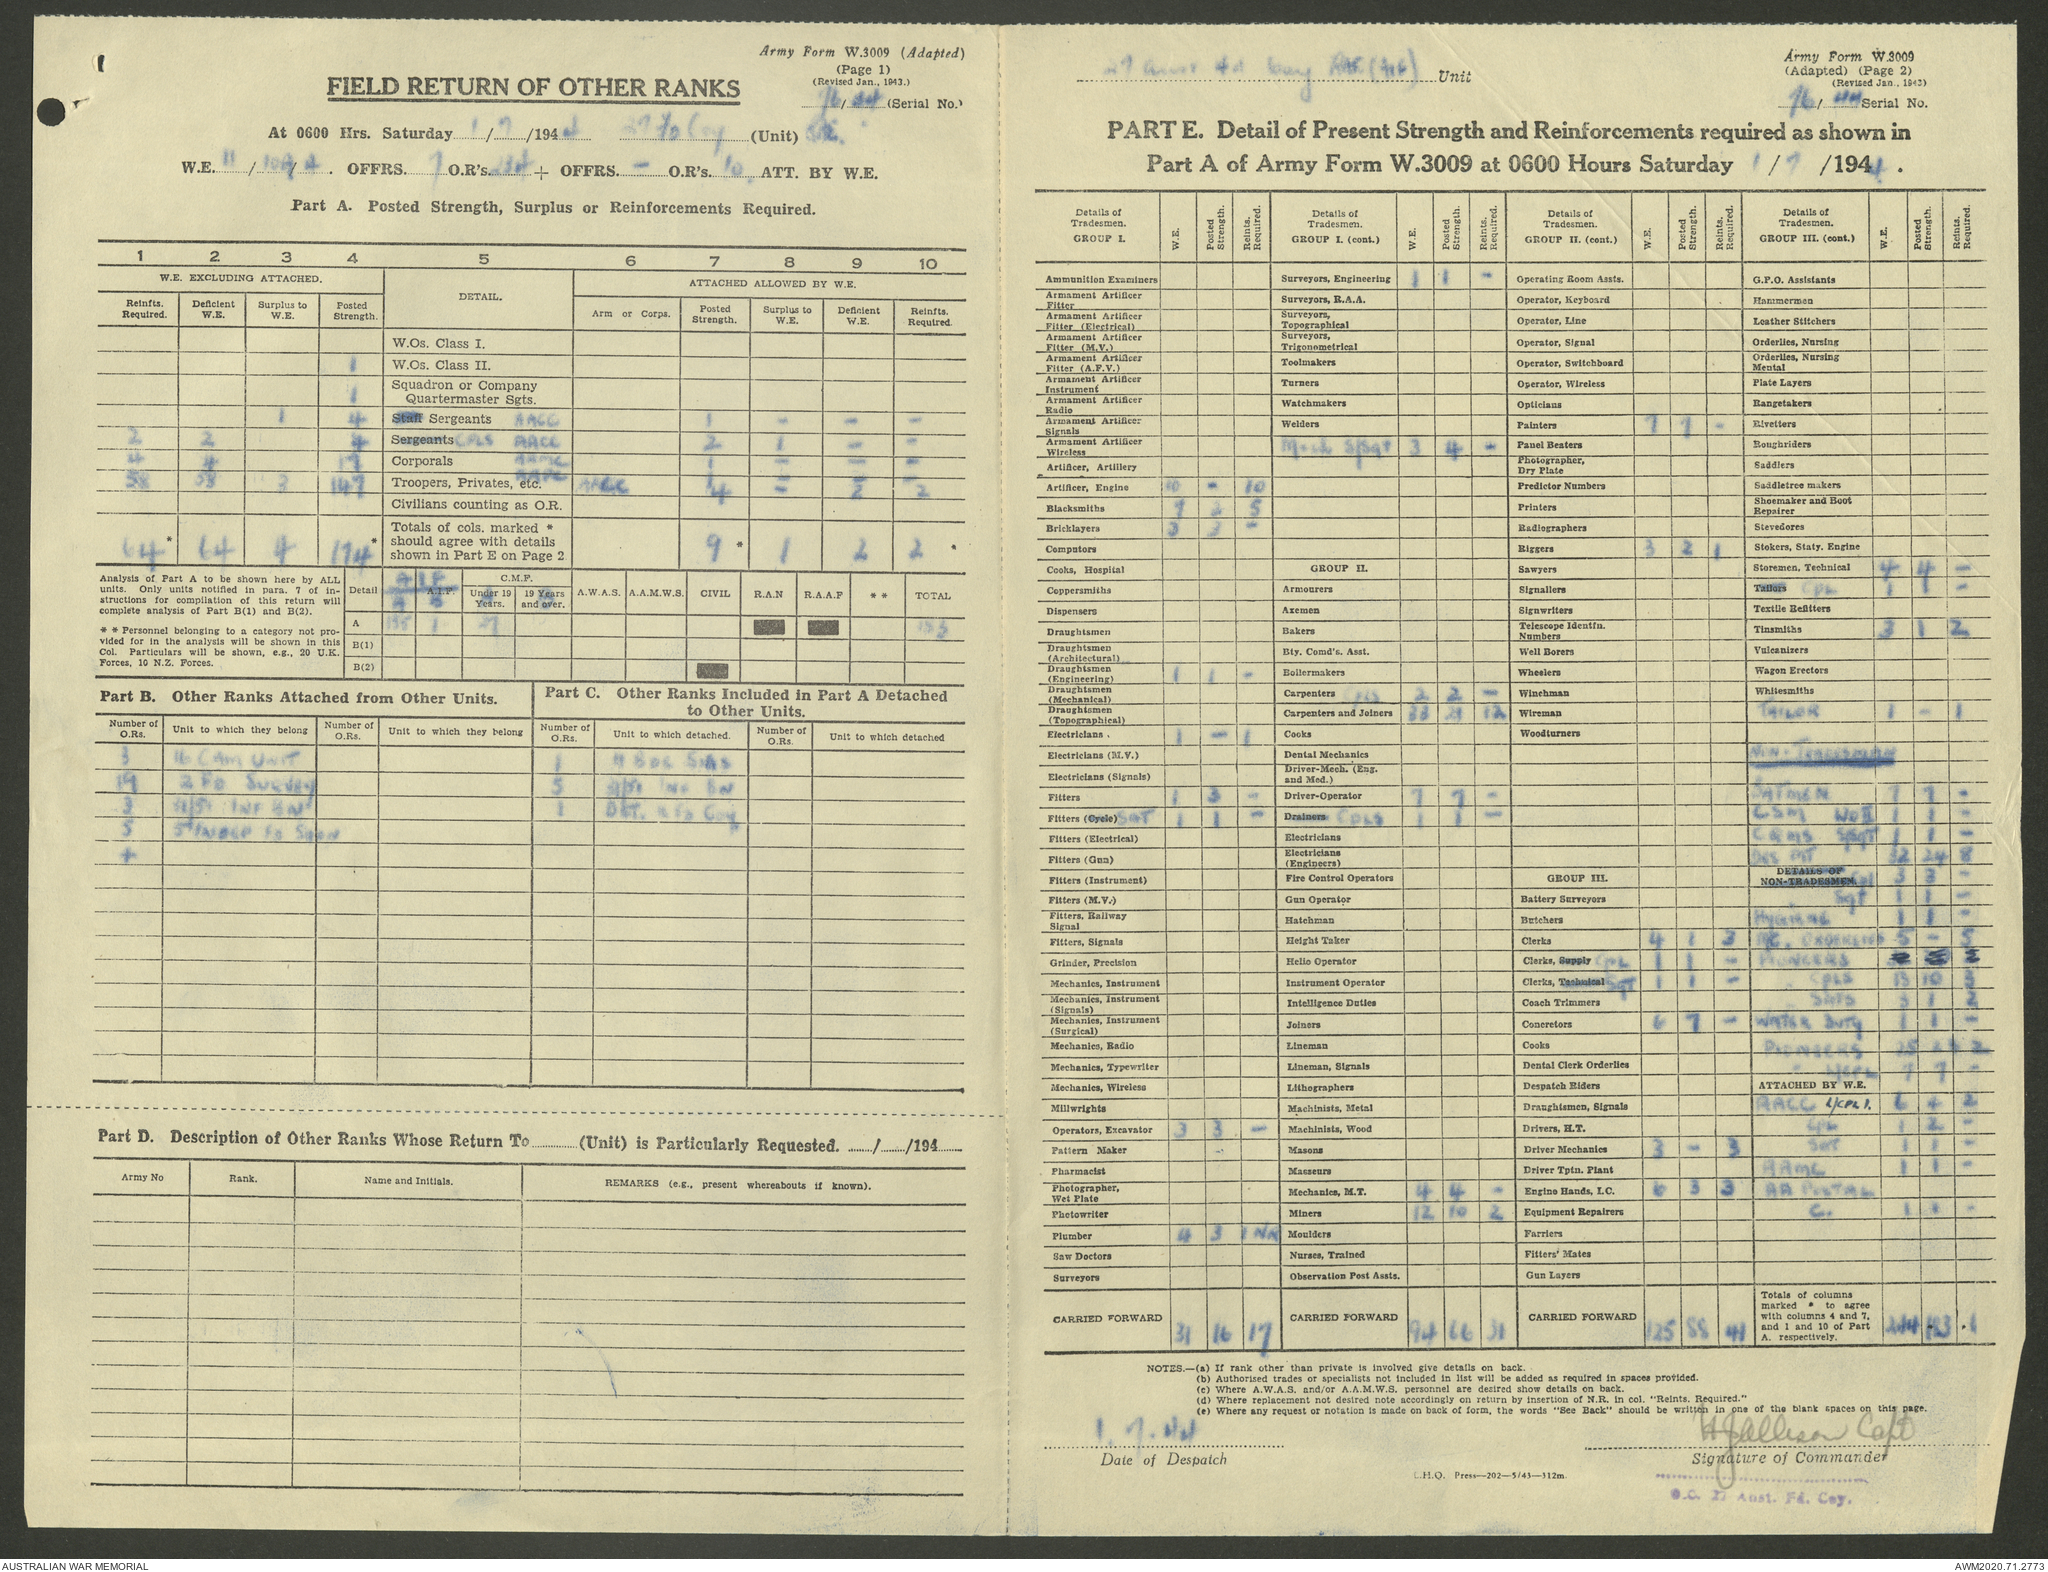 Army Form W.3009 (Adapted)
(Page 1)
(Revised Jan., 1943.)
FIELD RETURN OF OTHER RANKS
76/44 (Serial No.)
At 0600 Hrs. Saturday 1/7/1944 27 Fd Coy (Unit) RAE.
W.E. 11/109/4. OFFRS. 7 O.R's. 234 + OFFRS. - O.R's. 10. ATT. BY W.E.
Part A. Posted Strength, Surplus or Reinforcements Required.
1 2 3 4 5 6 7 8 9 10
W.E. EXCLUDING ATTACHED. DETAIL. ATTACHED ALLOWED BY W.E.
Reinfts. Required. Deficient W.E. Surplus to W.E. Posted Strength. Arm or Corps. Posted Strength. Surplus to W.E. Deficient W.E. Reinfts. Required.
W.Os. Class I.
1 W.Os. Class II.
1 Squadron or Company Quartermaster Sgts.
1 4 Staff Sergeants AACC 1 - - -
2 2 4 Sergeants CPLS AACC 2 1 - -
4 4 17 Corporals AAMC 1 - - -
58 58 3 147 Troopers, Privates, etc. AACC 4 - 2 2
Civilians counting as O.R.
64* 64 4 174* Totals of cols. marked * should agree with details shown in Part E on Page 2 9* 1 2 2 *
Analysis of Part A to be shown here by ALL units. Only units notified in para. 7 of instructions for compilation of this return will complete analysis of Part B(1) and B(2).
* * Personnel belonging to a category not provided for in the analysis will be shown in this Col. Particulars will be shown, e.g., 20 U.K. Forces, 10 N.Z. Forces.
Detail A.I.F. C.M.F. Under 19 Years. 19 Years and over. A.W.A.S. A.A.M.W.S. CIVIL R.A.N R.A.A.F * * TOTAL
A 155 1 27 183
B(1)
B(2)
Part B. Other Ranks Attached from Other Units.
Number of O.Rs. Unit to which they belong Number of O.Rs. Unit to which they belong
3 16 CAM UNIT
19 2 FD SURVEY
3 31/51 INF BN
5 5 INDEP FD SQDN
Part C. Other Ranks Included in Part A Detached to Other Units.
Number of O.Rs. Unit to which detached. Number of O.Rs. Unit to which detached
1 4 BDE SIGS
5 31/51 INF BN
1 DET. 2 FD COY
Part D. Description of Other Ranks Whose Return To (Unit) is Particularly Requested. / /194
Army No Rank. Name and Initials. REMARKS (e.g., present whereabouts if known).
27 Aust Fd Coy RAE (AIF) Unit
Army Form W.3009
(Adapted) (Page 2)
(Revised Jan., 1943)
76/44 Serial No.
PART E. Detail of Present Strength and Reinforcements required as shown in
Part A of Army Form W.3009 at 0600 Hours Saturday 1/7/1944.
Details of Tradesmen. GROUP I. W.E. Posted Strength. Reints. Required.
Ammunition Examiners
Armament Artificer Fitter
Armament Artificer Fitter (Electrical)
Armament Artificer Fitter (M.V.)
Armament Artificer Fitter (A.F.V.)
Armament Artificer Instrument
Armament Artificer Radio
Armament Artificer Signals
Armament Artificer Wireless
Artificer, Artillery
Artificer, Engine 10 - 10
Blacksmiths 7 2 5
Bricklayers 3 3 -
Computors
Cooks, Hospital
Coppersmiths
Dispensers
Draughtsmen
Draughtsmen (Architectural)
Draughtsmen (Engineering) 1 1 -
Draughtsmen (Mechanical)
Draughtsmen (Topographical)
Electricians . 1 - 1
Electricians (M.V.)
Electricians (Signals)
Fitters 1 3 -
Fitters (Cycle) SGT 1 1 -
Fitters (Electrical)
Fitters (Gun)
Fitters (Instrument)
Fitters (M.V.)
Fitters, Railway Signal
Fitters, Signals
Grinder, Precision
Mechanics, Instrument
Mechanics, Instrument (Signals)
Mechanics, Instrument (Surgical)
Mechanics, Radio
Mechanics, Typewriter
Mechanics, Wireless
Millwrights
Operators, Excavator 3 3 -
Pattern Maker
Pharmacist
Photographer, Wet Plate
Photowriter
Plumber 4 3 1 NR
Saw Doctors
Surveyors
CARRIED FORWARD 31 16 17
Details of Tradesmen. GROUP I. (cont.) W.E. Posted Strength. Reints. Required.
Surveyors, Engineering 1 1 -
Surveyors, R.A.A.
Surveyors, Topographical
Surveyors, Trigonometrical
Toolmakers
Turners
Watchmakers
Welders
Mech S/Sgt 3 4 -
GROUP II.
Armourers
Axemen
Bakers
Bty. Comd's. Asst.
Boilermakers
Carpenters CPLS 2 2 -
Carpenters and Joiners 33 21 12
Cooks
Dental Mechanics
Driver-Mech. (Eng. and Med.)
Driver-Operator 7 7 -
Drainers CPLS 1 1 -
Electricians
Electricians (Engineers)
Fire Control Operators
Gun Operator
Hatchman
Height Taker
Helio Operator
Instrument Operator
Intelligence Duties
Joiners
Lineman
Lineman, Signals
Lithographers
Machinists, Metal
Machinists, Wood
Masons
Masseurs
Mechanics, M.T. 4 4 -
Miners 12 10 2
Moulders
Nurses, Trained
Observation Post Assts.
CARRIED FORWARD 94 66 31
Details of Tradesmen. GROUP II. (cont.) W.E. Posted Strength. Reints. Required.
Operating Room Assts.
Operator, Keyboard
Operator, Line
Operator, Signal
Operator, Switchboard
Operator, Wireless
Opticians
Painters 7 7 -
Panel Beaters
Photographer, Dry Plate
Predictor Numbers
Printers
Radiographers
Riggers 3 2 1
Sawyers
Signallers
Signwriters
Telescope Identfn. Numbers
Well Borers
Wheelers
Winchman
Wireman
Woodturners
GROUP III.
Battery Surveyors
Butchers
Clerks 4 1 3
Clerks, Supply CPL 1 1 -
Clerks, Technical SGT 1 1 -
Coach Trimmers
Concretors 6 7 -
Cooks
Dental Clerk Orderlies
Despatch Riders
Draughtsmen, Signals
Drivers, H.T.
Driver Mechanics 3 - 3
Driver Tptn. Plant
Engine Hands, I.C. 6 3 3
Equipment Repairers
Farriers
Fitters' Mates
Gun Layers
CARRIED FORWARD 125 88 41
Details of Tradesmen. GROUP III. (cont) W.E. Posted Strength. Reints. Required.
G.P.O. Assistants
Hammermen
Leather Stitchers
Orderlies, Nursing
Orderlies, Nursing Mental
Plate Layers
Rangetakers
Rivetters
Roughriders
Saddlers
Saddletree makers
Shoemaker and Boot Repairer
Stevedores
Stokers, Staty. Engine
Storemen, Technical 4 4 -
Tailors CPL 1 1 -
Textile Refitters
Tinsmiths 3 1 2
Vulcanizers
Wagon Erectors
Whitesmiths
TAILOR 1 - 1
NON-TRADESMEN
BATMEN 7 7 -
CSM WOII 1 1 -
CQMS S/SGT 1 1 -
DVR MT 32 24 8
DETAILS OF NON-TRADESMEN. Cpl 3 3 -
Sgt 1 1 -
HYGIENE 1 1 -
MC. ORDERLIES 5 - 5
PIONEERS
CPLS 13 10 3
SGTS 3 1 2
WATER DUTY 1 1 -
PIONEERS 25 23 2
L/CPL 7 7 -
ATTACHED BY W.E.
AACC L/CPL 1. 6 4 2
CPL 1 2 -
SGT 1 1 -
AAMC 1 1 -
AA POSTAL
C. 1 1 -
Totals of columns marked * to agree with columns 4 and 7, and 1 and 10 of Part A. respectively. 244 183
NOTES.—(a) If rank other than private is involved give details on back.
(b) Authorised trades or specialists not included in list will be added as required in spaces provided.
(c) Where A.W.A.S. and/or A.A.M.W.S. personnel are desired show details on back.
(d) Where replacement not desired note accordingly on return by insertion of N.R. in col. "Reints. Required."
(e) Where any request or notation is made on back of form, the words "See Back" should be written in one of the blank spaces on this page.
1.7.44
Date of Despatch
HJAllison Capt
Signature of Commander
L.H.Q. Press—202—5/43—312m.
O.C. 27 Aust. Fd. Coy.
AUSTRALIAN WAR MEMORIAL
AWM2020.71.2773